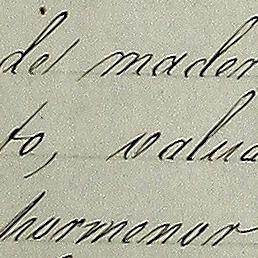 de mader
to, valua
hormenor